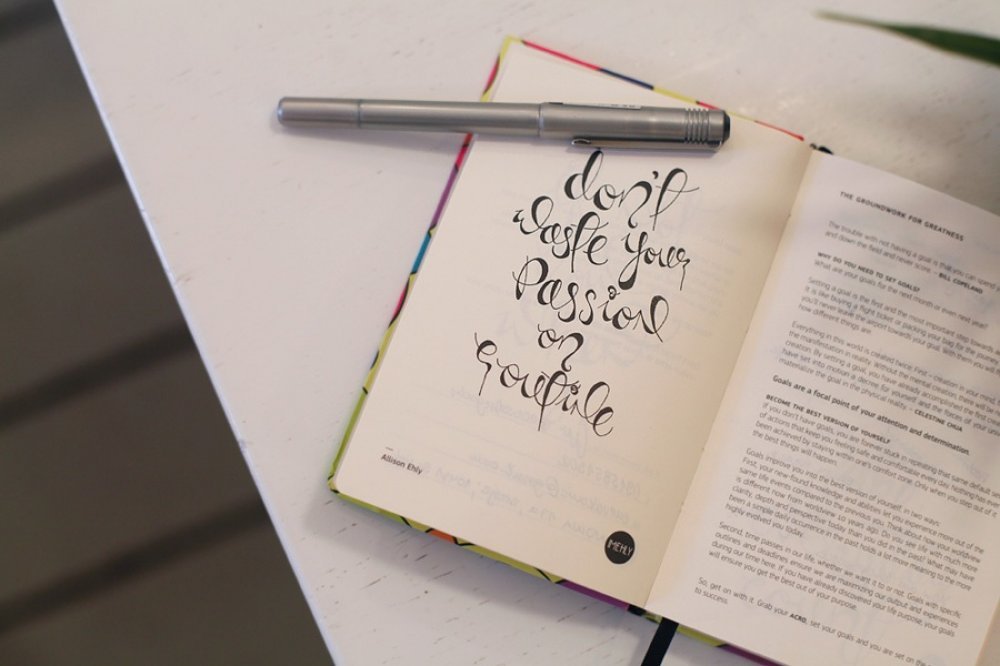 don't
Waste your
Passion
on
Routine
Allison Ehly
IMEHLY
THE GROUNDWORK FOR GREATNESS
The trouble with not having a goal is that you can spend
and down the field and never score. – BILL COPELAND
WHY DO YOU NEED TO SET GOALS?
What are your goals for the next month or even next year?
Setting a goal is the first and the most important step towards
It is like buying a flight ticket or packing your bag for the journey
you'll never leave the airport towards your goal. With them you will
how different things are.
Everything in this world is created twice. First – creation in your mind,
the manifestation in reality. Without the mental creation, there will be no
creation. By setting a goal, you have already accomplished the first creation
have set into motion a decree for yourself and the forces of your universe
materialize the goal in the physical reality. – CELESTINE CHUA
Goals are a focal point of your attention and determination.
BECOME THE BEST VERSION OF YOURSELF
If you don't have goals, you are forever stuck in repeating that same default set
of actions that keep you feeling safe and comfortable every day. Nothing has
been achieved by staying within one's comfort zone. Only when you step out of it
the best things will happen.
Goals improve you into the best version of yourself, in two ways:
First, your new-found knowledge and abilities let you experience more out of the
same life events compared to the previous you. Think about how your worldview
is different now from worldview 10 years ago. Do you see life with much more
clarity, depth and perspective today than you did in the past? What may have
been a simple daily occurrence in the past holds a lot more meaning to the more
highly evolved you today.
Second, time passes in our life, whether we want it to or not. Goals with specific
outlines and deadlines ensure we are maximizing our output and experiences
during our time here. If you have already discovered your life purpose, your goals
will ensure you get the best out of your purpose.
So, get on with it. Grab your ACRO, set your goals and you are set on the
to success.